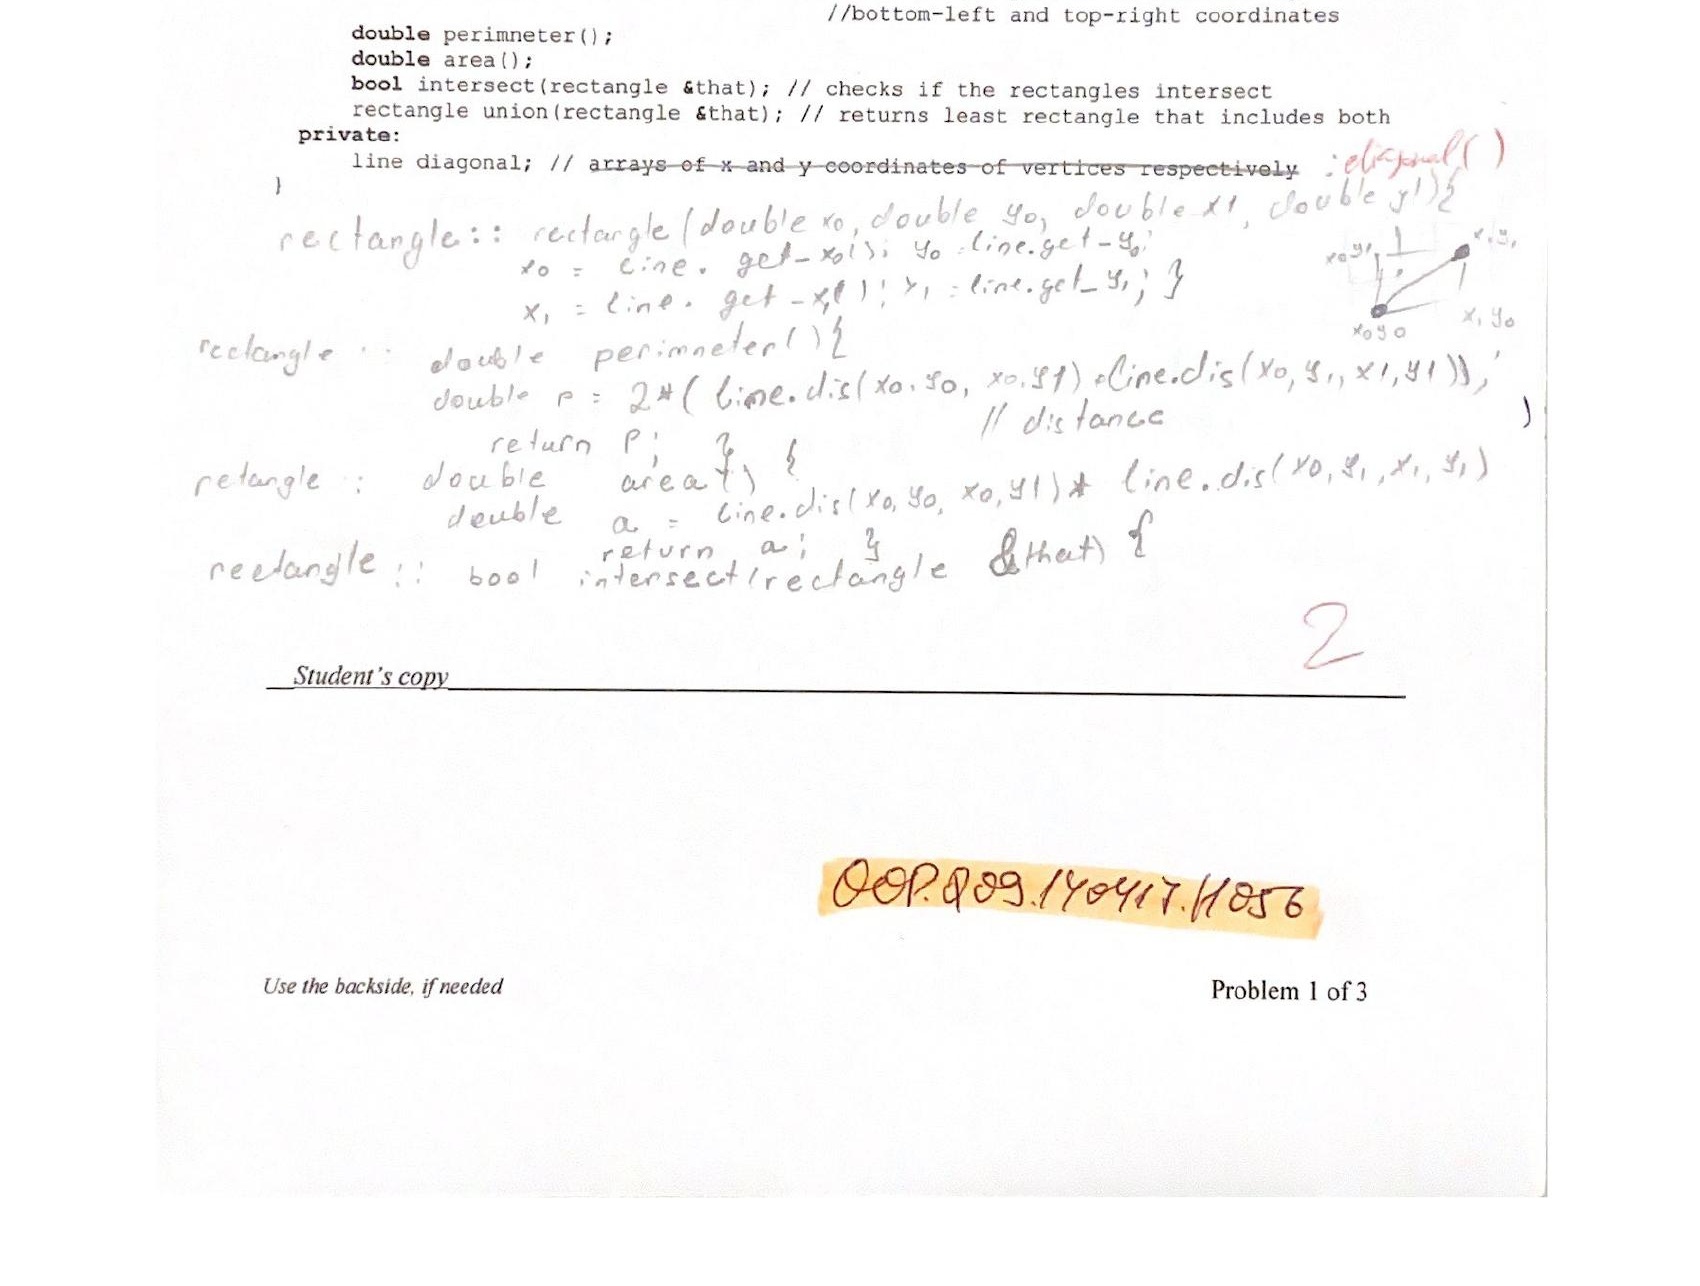 //bottom-left and top-right coordinates
double perimneter();
double area();
bool intersect(rectangle &that); // checks if the rectangles intersect
rectangle union(rectangle &that); // returns least rectangle that includes both
private:
line diagonal; // arrays of x and y coordinates of vertices respectively :diagonal()
}
rectangle:: rectangle(double x0, double y0, double x1, double y1){
x0 = line. get-x0(); y0 = line.get-y0;
x1 = line. get-x1(); y1 = line.get_y1; }
x0y1 x1y1
x0y0 x1y0
rectangle :: double perimneter(){
double p = 2*( line.dis(x0,y0, x0,y1) + line.dis(x0, y1, x1, y1));
// distance
return p; }
retangle : double area() {
double a = line.dis(x0, y0, x0, y1) * line.dis(x0, y1, x1, y1)
return a; }
rectangle :: bool intersect(rectangle &that) {
2
Student's copy
OOP.Q09.140417.H056
Use the backside, if needed
Problem 1 of 3